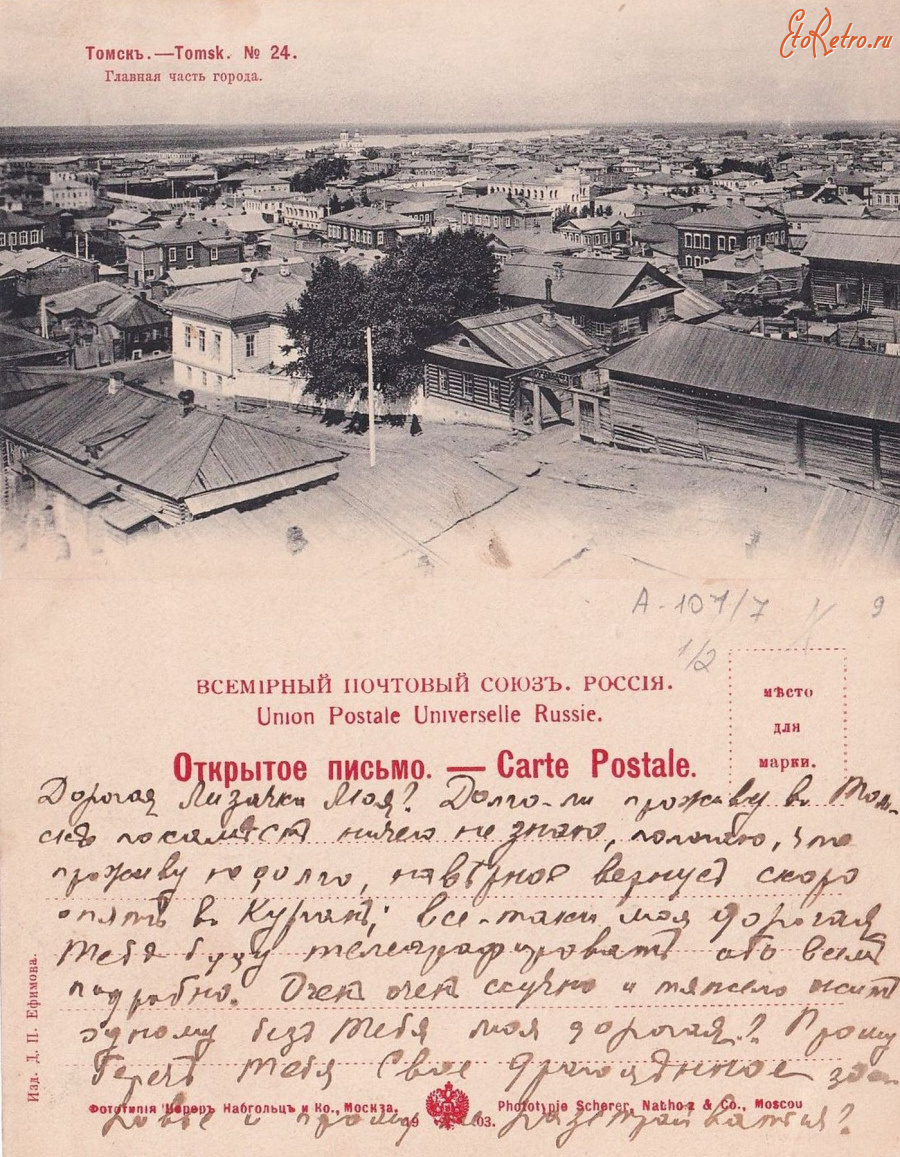 EtoRetro.ru
Томскъ.—Tomsk. № 24.
Главная часть города.
А-107/7
9
1/2
ВСЕМІРНЫЙ ПОЧТОВЫЙ СОЮЗЪ. РОССІЯ.
Union Postale Universelle Russie.
мѣсто
для
марки.
Открытое письмо. — Carte Postale.
Дорогая Лизачки Моя? Долго-ли проживу въ Том-
скѣ покамѣстъ ничего не знаю, полагаю, что
проживу недолго, навѣрное вернусь скоро
опять въ Курганъ; все-таки моя дорогая
Тебѣ буду телеграфировать обо всемъ
подробно. Очень очень скучно и тяжело жить
одному безъ Тебя моя дорогая? Прошу
беречь Тебя Свое драгоцѣнное здо-
ровье и прошу не разстраиваться?
Изд. Д. П. Ефимова.
Фототипія Шереръ Набгольцъ и Ко., Москва.
1903.
Phototypie Scherer, Nabholz & Co., Moscou